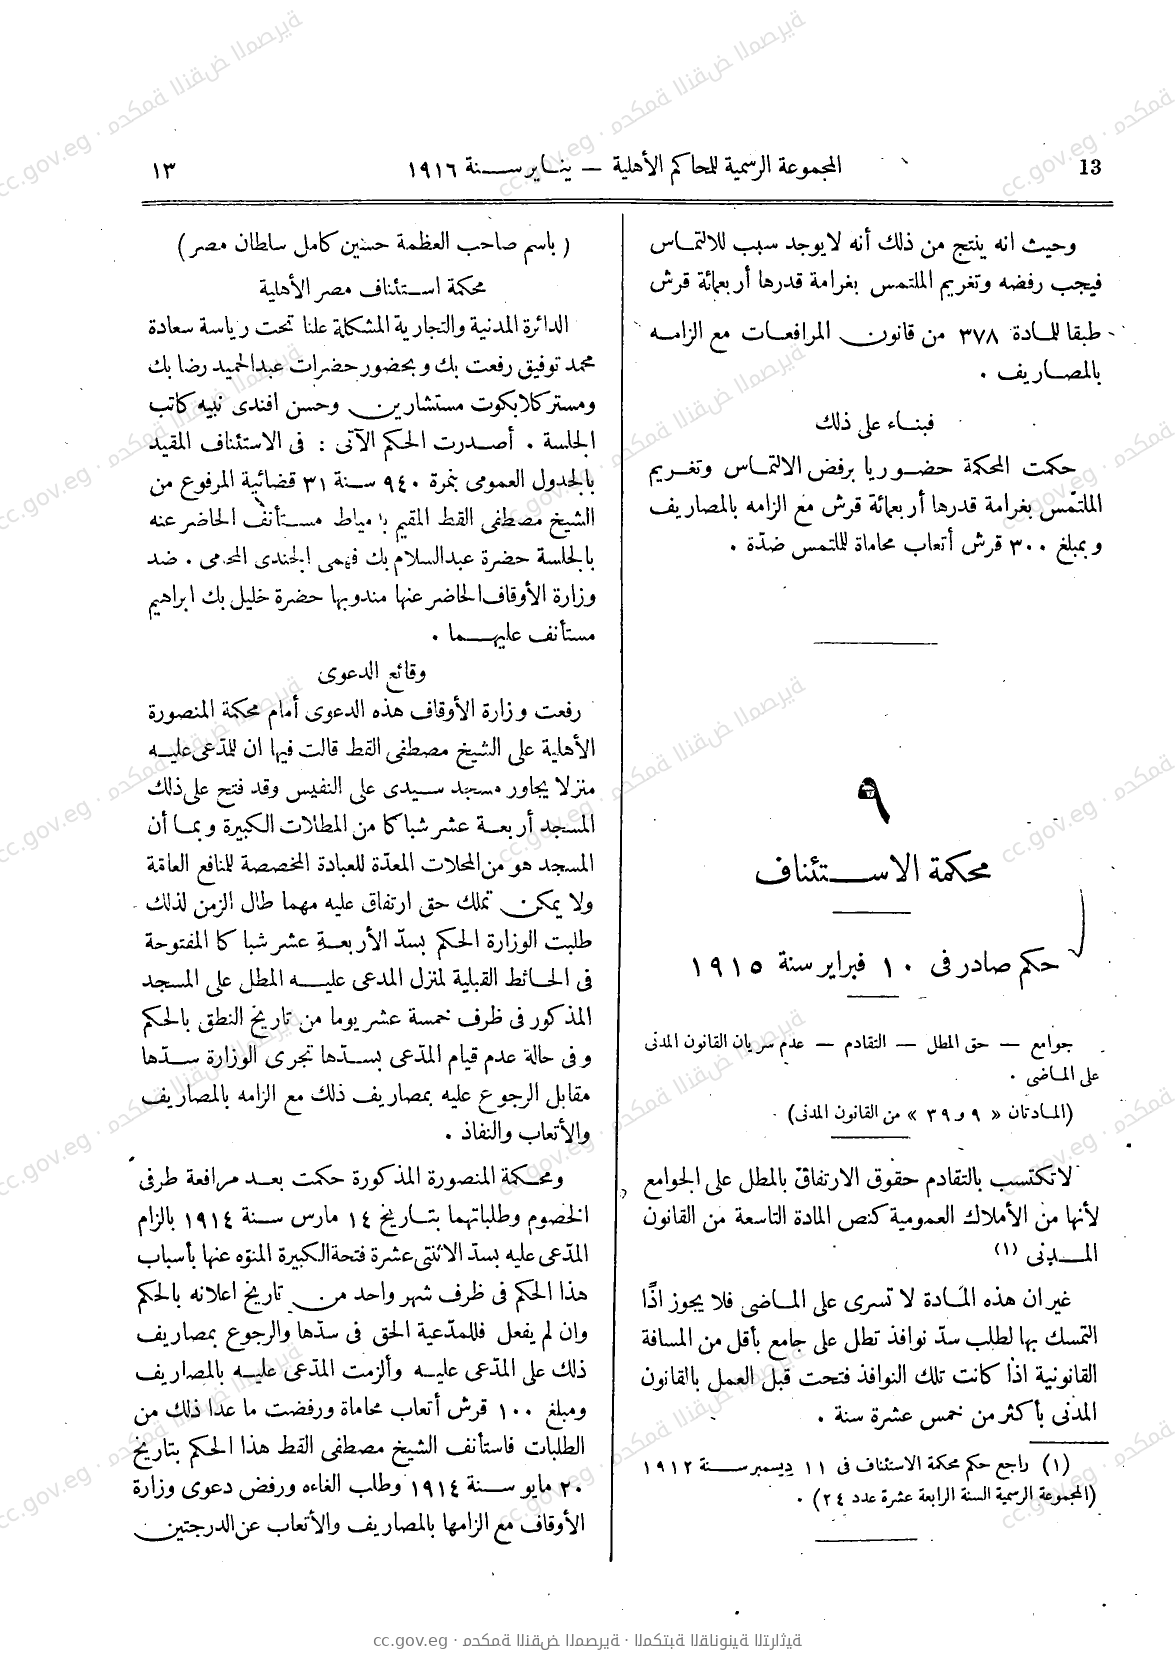 13
المجموعة الرسمية للمحاكم الأهلية — ينــاير ســـنة ١٩١٦
١٣
وحيث انه ينتج من ذلك أنه لا يوجد سبب للالتمــاس
فيجب رفضه وتغريم الملتمس بغرامة قدرها أربعمائة قرش
طبقا للــادة ٣٧٨ من قانون المرافعــات مع الزامــه
بالمصــاريف .
فبنــاء على ذلك
حكمت المحكمة حضــوريا برفض الالتمــاس وتغــريم
الملتمس بغرامة قدرها أربعمائة قرش مع الزامه بالمصاريف
وبمبلغ ٣٠٠ قرش أتعاب محاماة للملتمس ضدّه .
٩
محكمة الاســـتئناف
حكم صادر فى ١٠ فبراير سنة ١٩١٥
جوامع — حق المطل — التقادم — عدم سريان القانون المدنى
على المــاضى .
(المــادتان « ٩ و ٣٩ » من القانون المدنى)
لا تكتسب بالتقادم حقوق الارتفاق بالمطل على الجوامع
لأنها من الأملاك العمومية كنص المادة التاسعة من القانون
المــدنى (١)
غير ان هذه المــادة لا تسرى على المــاضى فلا يجوز اذًا
التمسك بها لطلب سدّ نوافذ تطل على جامع بأقل من المسافة
القانونية اذا كانت تلك النوافذ فتحت قبل العمل بالقانون
المدنى بأكثر من خمس عشرة سنة .
(١) راجع حكم محكمة الاستئناف فى ١١ ديسمبر ســـنة ١٩١٢
(المجموعة الرسمية السنة الرابعة عشرة عدد ٢٤) .
( باسم صاحب العظمة حسين كامل سلطان مصر )
محكمة اســتئناف مصر الأهلية
الدائرة المدنية والتجارية المشكلة علنا تحت رياسة سعادة
محمد توفيق رفعت بك وبحضور حضرات عبد الحميد رضا بك
ومستر كلايكوت مستشارين وحسن افندى نبيه كاتب
الجلسة . أصــدرت الحكم الآتى : فى الاستئناف المقيد
بالجدول العمومى بنمرة ٩٤٠ ســنة ٣١ قضائية المرفوع من
الشيخ مصطفى القط المقيم بدمياط مســتأنف الحاضر عنه
بالجلسة حضرة عبد السلام بك فهمى الجندى المحامى . ضد
وزارة الأوقاف الحاضر عنها مندوبها حضرة خليل بك ابراهيم
مستأنف عليهـــما .
وقائع الدعوى
رفعت وزارة الأوقاف هذه الدعوى أمام محكمة المنصورة
الأهلية على الشيخ مصطفى القط قالت فيها ان للمدّعى عليــه
منزلا يجاور مسجد ســيدى على النفيس وقد فتح على ذلك
المسجد أربعــة عشر شباكا من المطلات الكبيرة وبمــا أن
المسجد هو من المحلات المعدّة للعبادة المخصصة للمنافع العامّة
ولا يمكن تملك حق ارتفاق عليه مهما طال الزمن لذلك
طلبت الوزارة الحكم بسدّ الأربعــة عشر شباكا المفتوحة
فى الحــائط القبلية لمنزل المدعى عليـــه المطل على المسجد
المذكور فى ظرف خمسة عشر يوما من تاريخ النطق بالحكم
وفى حالة عدم قيام المدّعى بســدّها تجرى الوزارة ســدّها
مقابل الرجوع عليه بمصاريف ذلك مع الزامه بالمصاريف
والأتعاب والنفاذ .
ومحــكمة المنصورة المذكورة حكمت بعــد مرافعة طرفى
الخصوم وطلباتهما بتــاريخ ١٤ مارس ســنة ١٩١٤ بالزام
المدّعى عليه بسدّ الاثنتى عشرة فتحة الكبيرة المنوّه عنها بأسباب
هذا الحكم فى ظرف شهر واحد من تاريخ اعلانه بالحكم
وان لم يفعل فللمدّعية الحق فى سدّها والرجوع بمصاريف
ذلك على المدّعى عليــه وألزمت المدّعى عليــه بالمصاريف
ومبلغ ١٠٠ قرش أتعاب محاماة ورفضت ما عدا ذلك من
الطلبات فاستأنف الشيخ مصطفى القط هذا الحكم بتاريخ
٢٠ مايو ســـنة ١٩١٤ وطلب الغاءه ورفض دعوى وزارة
الأوقاف مع الزامها بالمصاريف والأتعاب عن الدرجتين
cc.gov.eg · محكمة النقض المصرية · المكتبة القانونية التراثية